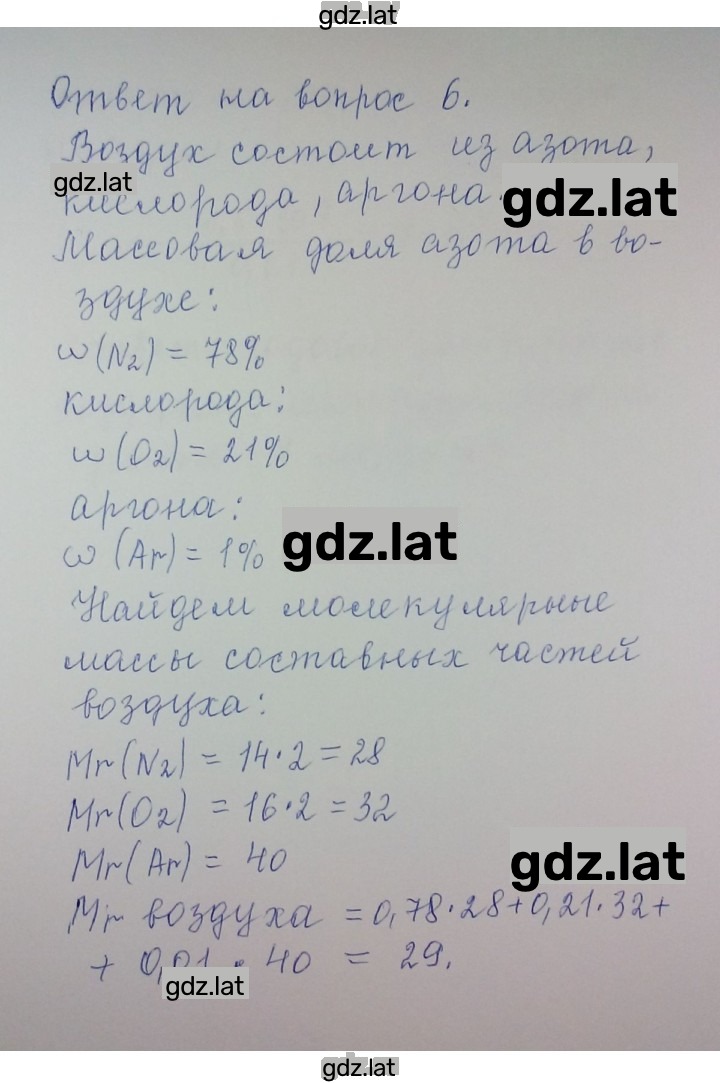 gdz.lat
Ответ на вопрос 6.
Воздух состоит из азота,
gdz.lat
кислорода, аргона. gdz.lat
Массовая доля азота в во-
здухе:
w(N₂) = 78%
кислорода:
w(O₂) = 21%
аргона:
w(Ar) = 1% gdz.lat
Найдем молекулярные
массы составных частей
воздуха:
Mr(N₂) = 14·2 = 28
Mr(O₂) = 16·2 = 32
Mr(Ar) = 40 gdz.lat
Mr воздуха = 0,78·28+0,21·32+
+ 0,01 · 40 = 29.
gdz.lat
gdz.lat